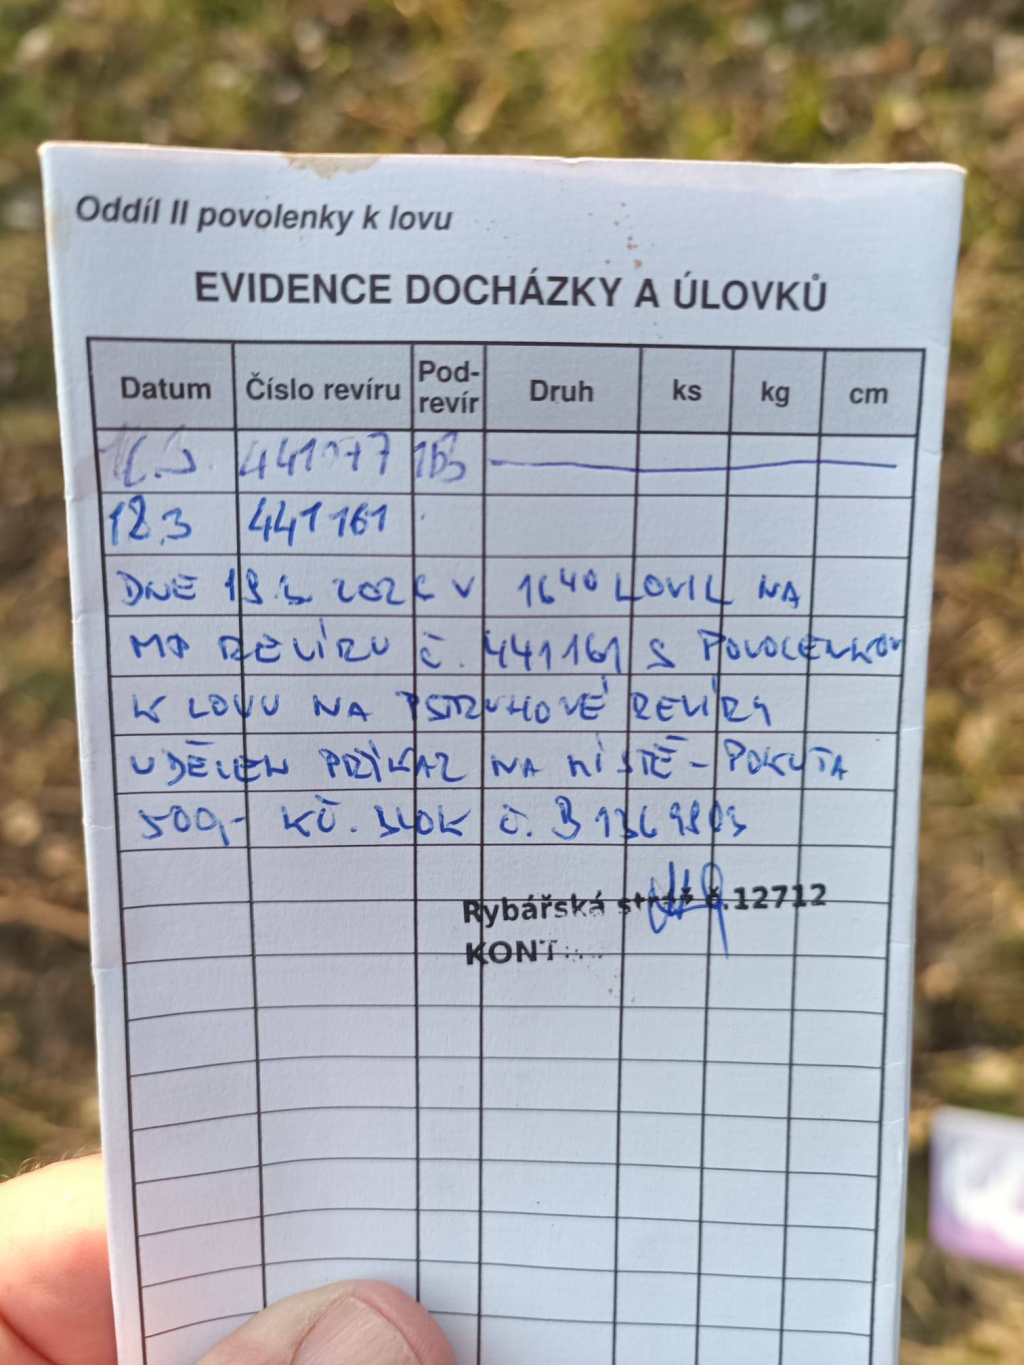 Oddíl II povolenky k lovu
EVIDENCE DOCHÁZKY A ÚLOVKŮ
Datum Číslo revíru Pod-revír Druh ks kg cm
441077 1B
18.3 441161
DNE 18.3. V 1640 LOVIL NA
MP REVÍRU č. 441161 S POVOLENKOU
K LOVU NA PSTRUHOVÉ REVÍRY
UDĚLEN PŘÍKAZ NA MÍSTĚ - POKUTA
500,- KČ. BLOK Č.
Rybářská stráž č.12712
KONT